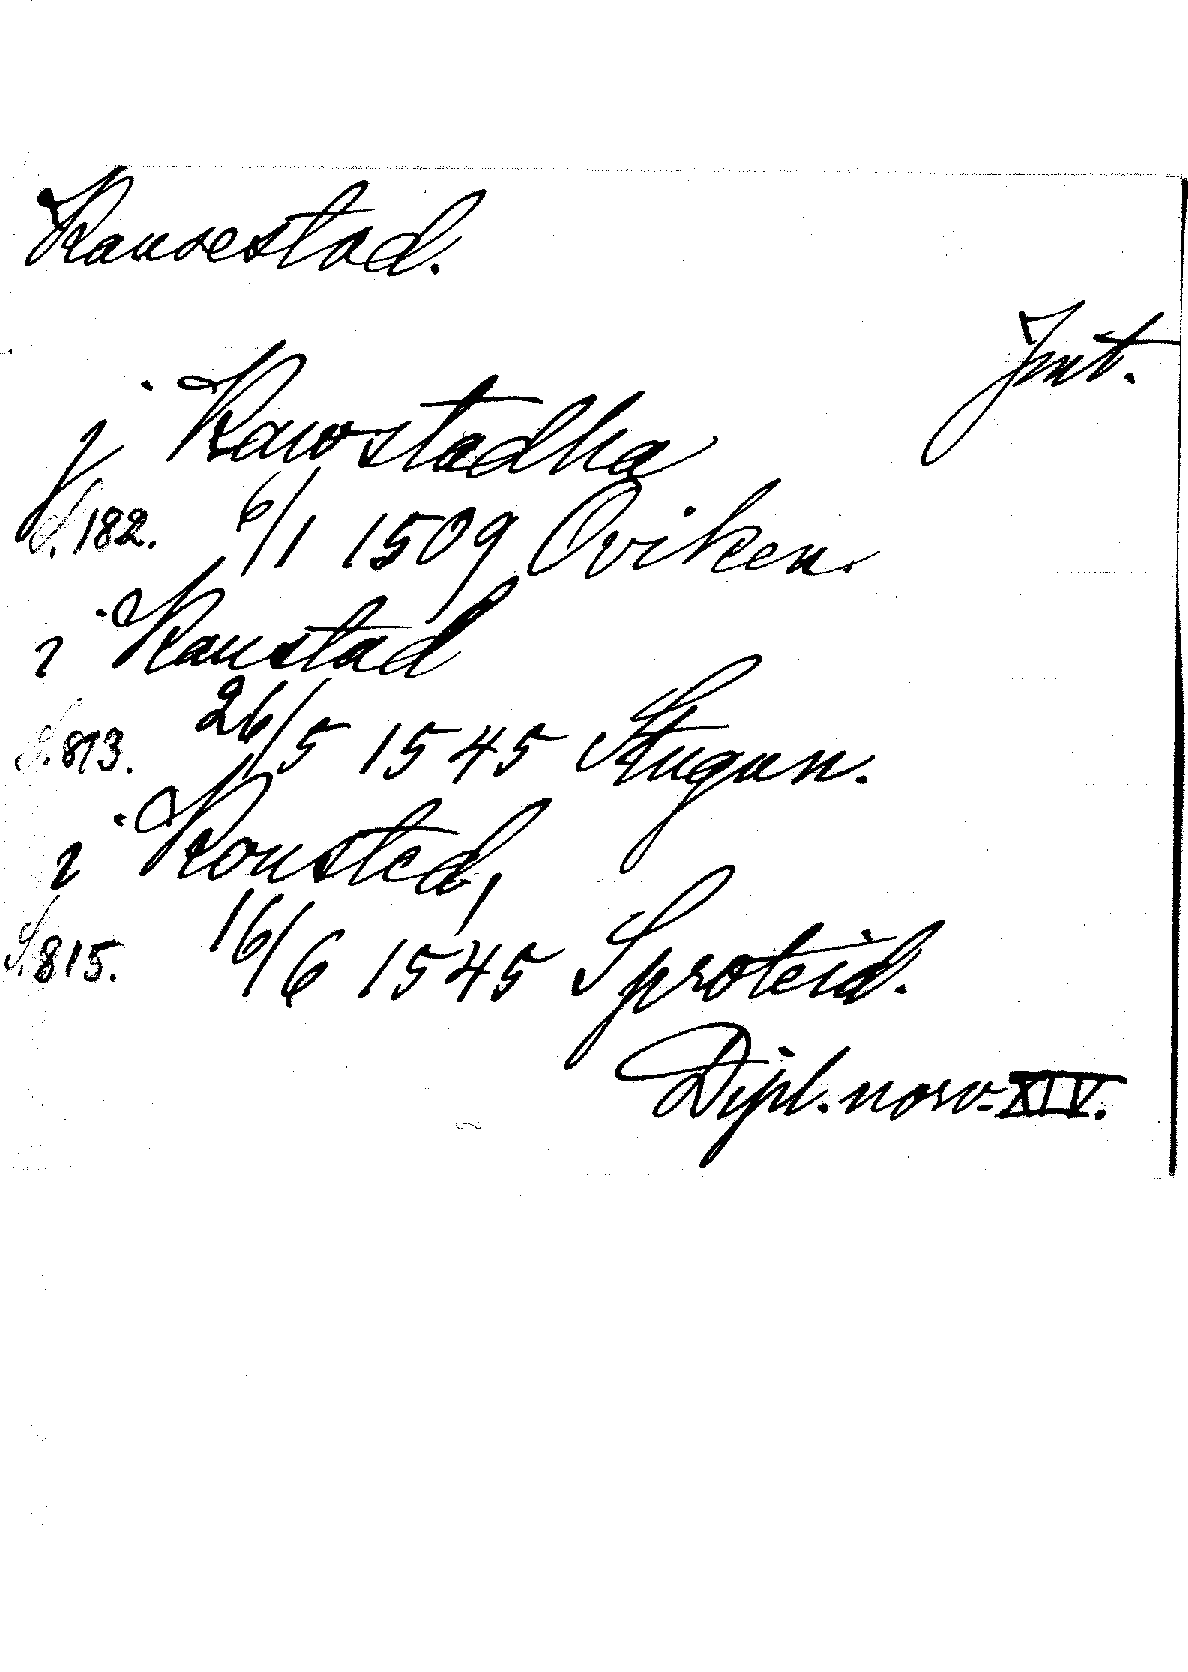 Ransestad.
Jmt.
j Rawstadha
S. 182. 6/1 1509 Oviken.
i Raustad
S. 813. 26/5 1545 Stugun.
i Rousted,
S. 815. 16/6 1545 Sproteid.
Dipl. norv. XIV.